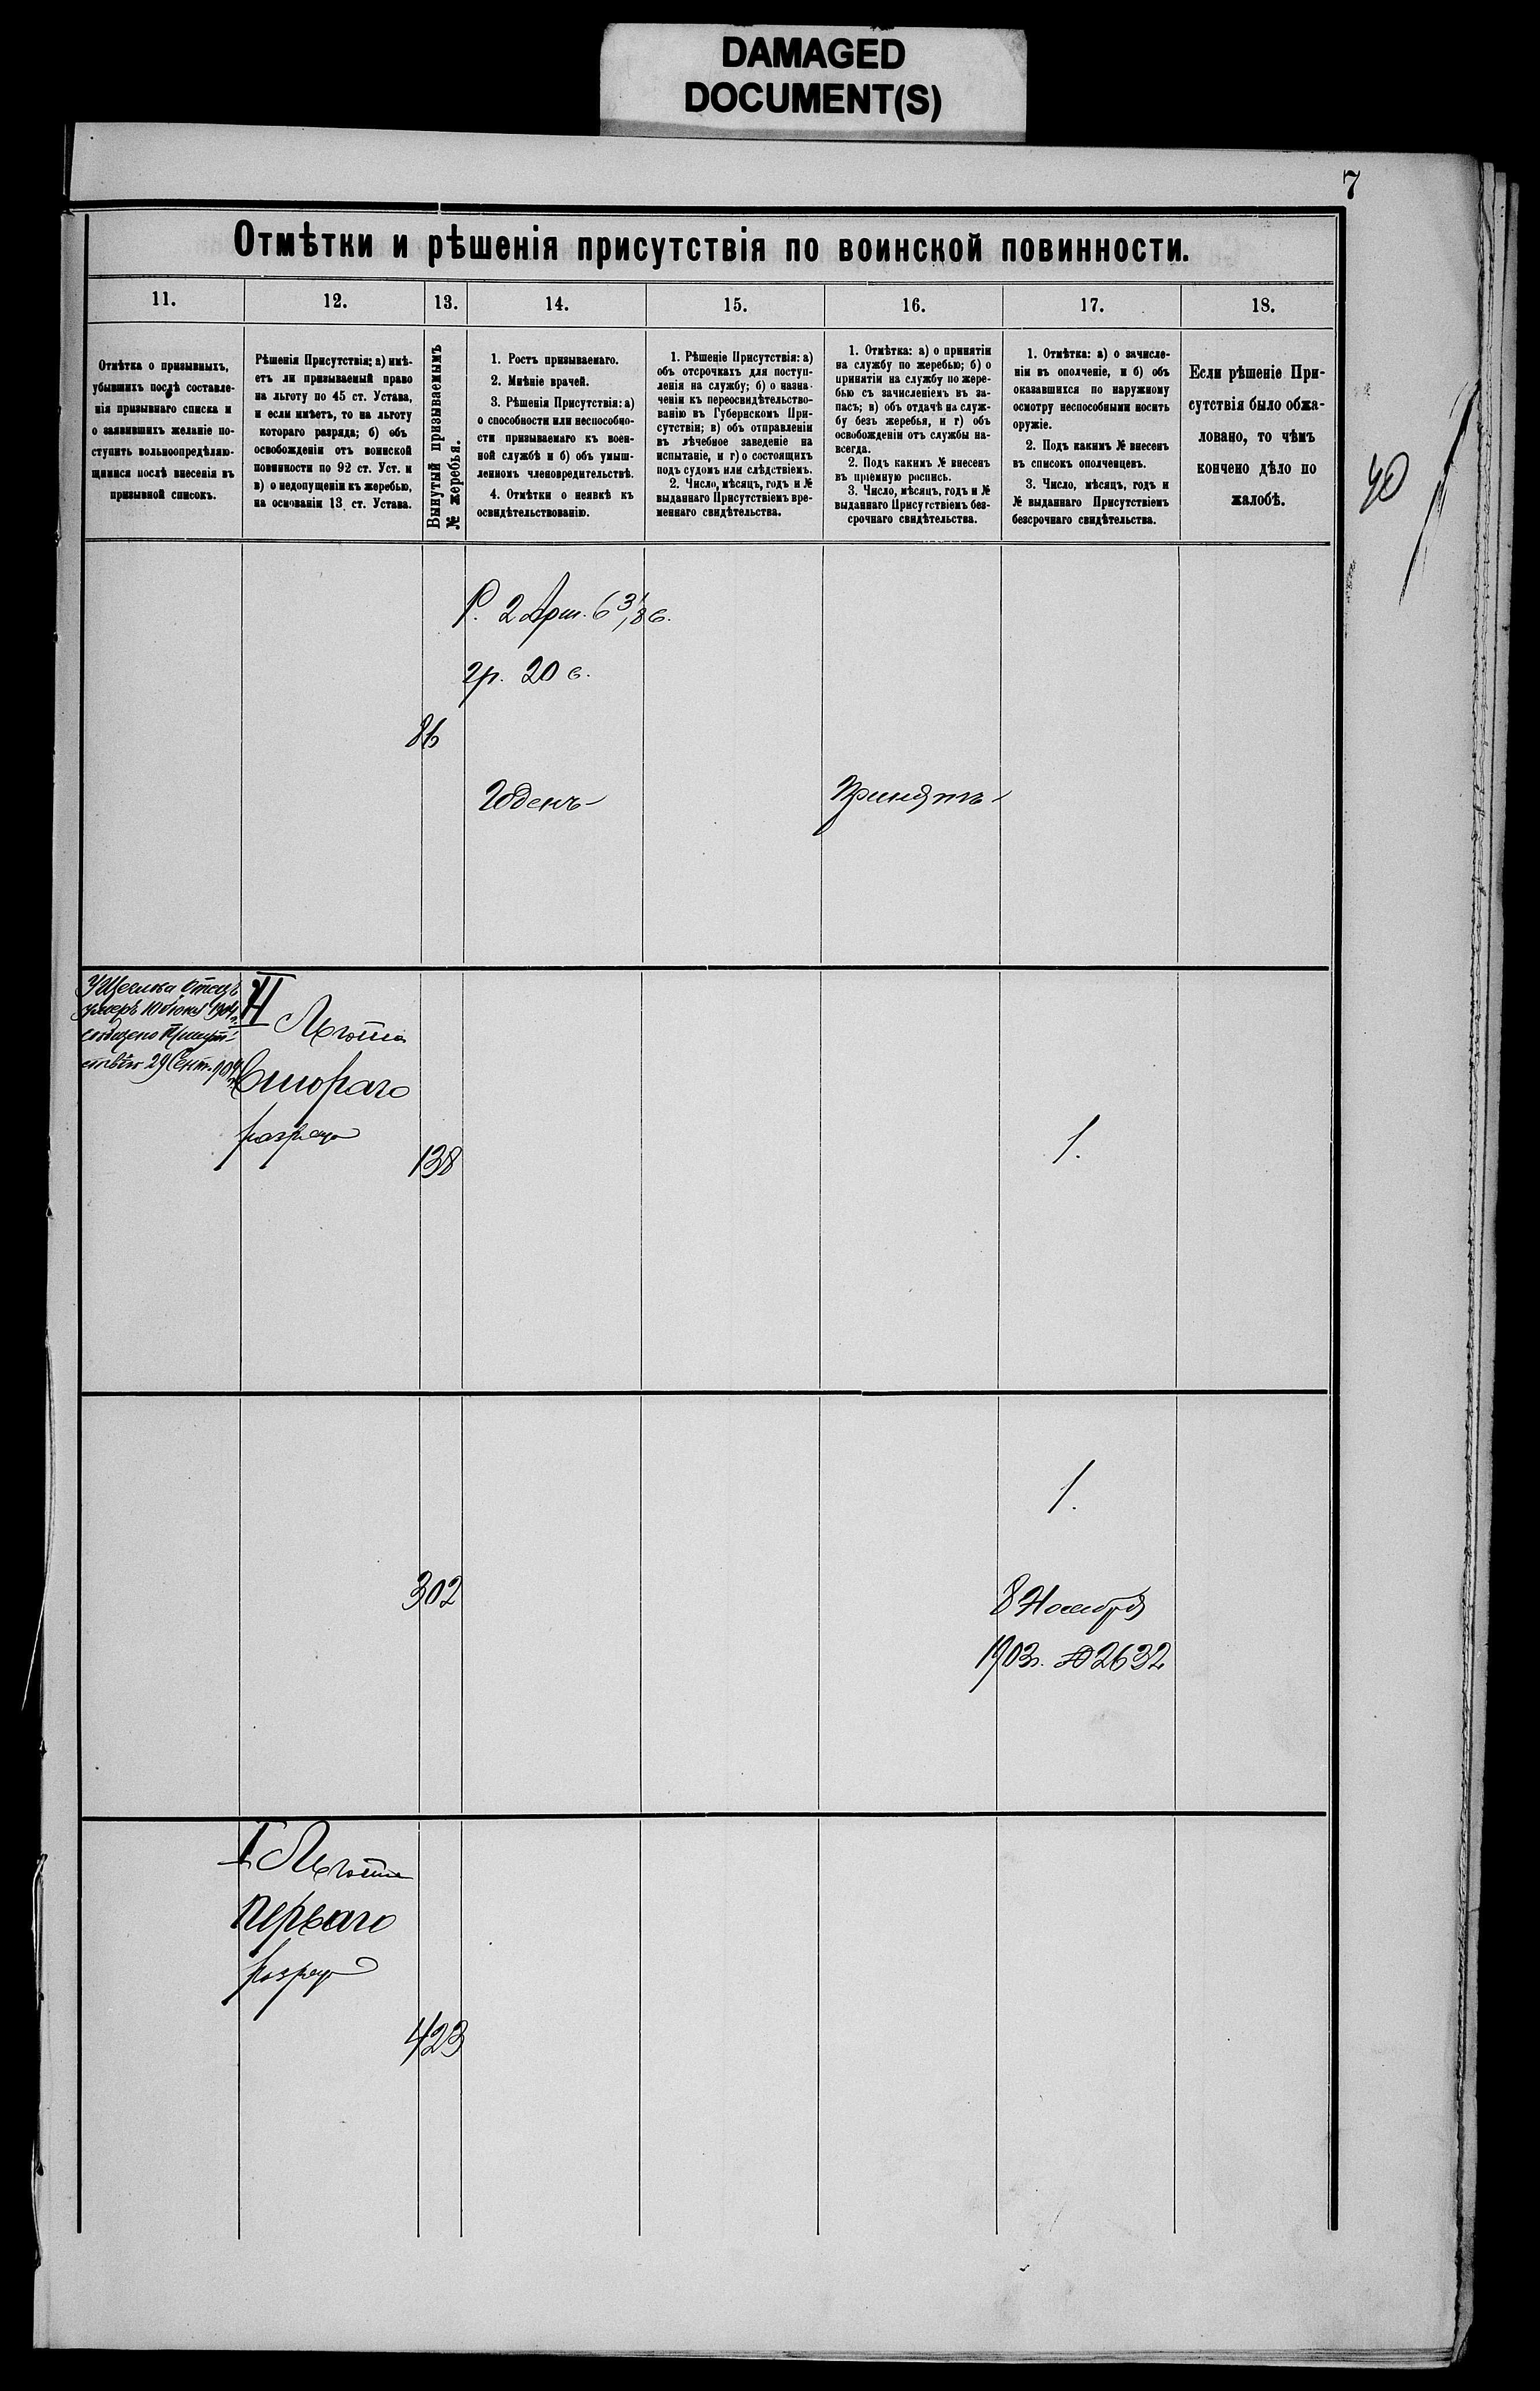 DAMAGED
DOCUMENT(S)
7
Отмѣтки и рѣшенія присутствія по воинской повинности.
11.
12.
13.
14.
15.
16.
17.
18.
Отмѣтка о призывныхъ,
убывшихъ послѣ составле-
нія призывнаго списка и
о заявившихъ желаніе по-
ступить вольноопредѣляю-
щимися послѣ внесенія въ
призывной списокъ.
Рѣшенія Присутствія: а) имѣ-
етъ ли призываемый право
на льготу по 45 ст. Устава,
и если имѣетъ, то на льготу
котораго разряда; б) объ
освобожденіи отъ воинской
повинности по 92 ст. Уст. и
в) о недопущеніи къ жеребью,
на основаніи 13 ст. Устава.
Вынутый призываемымъ
№ жеребья.
1. Ростъ призываемаго.
2. Мнѣніе врачей.
3. Рѣшенія Присутствія: а)
о способности или неспособно-
сти призываемаго къ воен-
ной службѣ и б) объ умыш-
ленномъ членовредительствѣ.
4. Отмѣтки о неявкѣ къ
освидѣтельствованію.
1. Рѣшеніе Присутствія: а)
объ отсрочкахъ для поступ-
ленія на службу; б) о назна-
ченіи къ переосвидѣтельство-
ванію въ Губернскомъ При-
сутствіи; в) объ отправленіи
въ лѣчебное заведеніе на
испытаніе, и г) о состоящихъ
подъ судомъ или слѣдствіемъ.
2. Число, мѣсяцъ, годъ и №
выданнаго Присутствіемъ вре-
меннаго свидѣтельства.
1. Отмѣтка: а) о принятіи
на службу по жеребью; б) о
принятіи на службу по жере-
бью съ зачисленіемъ въ за-
пасъ; в) объ отдачѣ на служ-
бу безъ жеребья, и г) объ
освобожденіи отъ службы на-
всегда.
2. Подъ какимъ № внесенъ
въ пріемную роспись.
3. Число, мѣсяцъ, годъ и №
выданнаго Присутствіемъ без-
срочнаго свидѣтельства.
1. Отмѣтка: а) о зачисле-
ніи въ ополченіе, и б) объ
оказавшихся по наружному
осмотру неспособными носить
оружіе.
2. Подъ какимъ № внесенъ
въ списокъ ополченцевъ.
3. Число, мѣсяцъ, годъ и
№ выданнаго Присутствіемъ
безсрочнаго свидѣтельства.
Если рѣшеніе При-
сутствія было обжа-
ловано, то чѣмъ
кончено дѣло по
жалобѣ.
40
Р. 2 Арш. 6 3/8 в.
гр. 20 в.
86
Годенъ
Принятъ
отецъ
умеръ 10 1904 г.
сообщено Присут-
ствію 29 Сент. 904 г.
II Льгота
Второго
разряда
138
1.
1.
302
8 Ноября
1903 г. № 2632
I Льгота
перваго
разряда
423